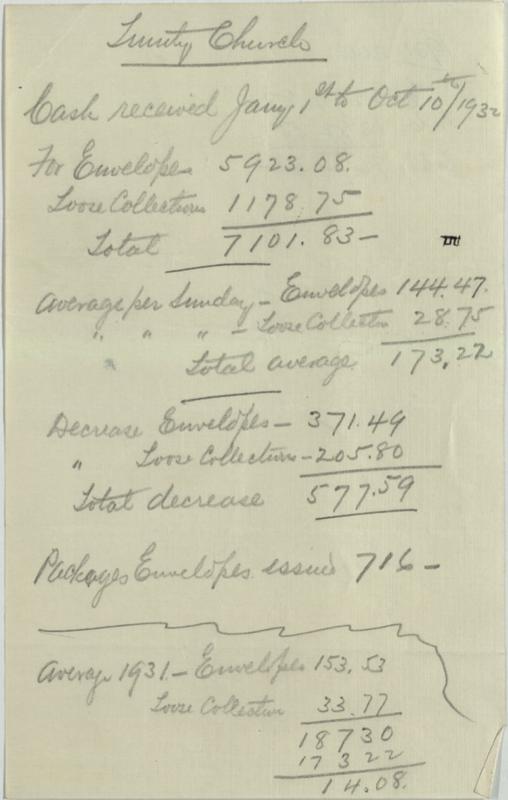 Trinity Church
Cash received Jany 1st to Oct 10th/1932
For Envelopes 5923.08.
Loose Collections 1178.75
Total 7101.83-
Average per Sunday - Envelopes 144.47.
" " " - Loose Collection 28.75
Total average 173.22
Decrease Envelopes - 371.49
" Loose Collections - 205.80
Total decrease 577.59
Packages Envelopes issued 716-
Average 1931 - Envelopes 153.53
Loose Collection 33.77
18730
17322
14.08.